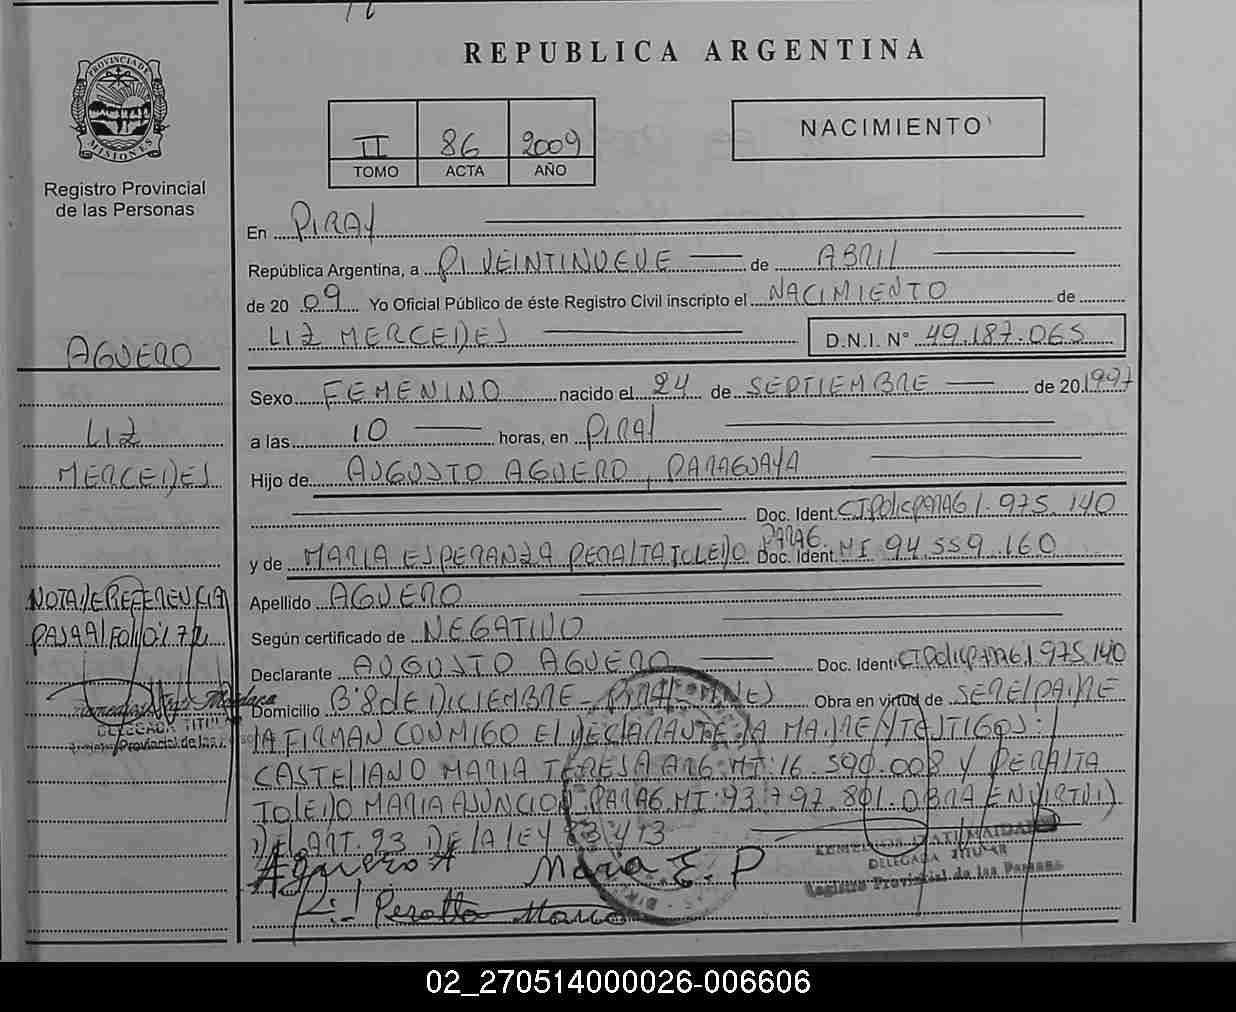 REPUBLICA ARGENTINA
PROVINCIA DE MISIONES
Registro Provincial
de las Personas
II 86 2009
TOMO ACTA AÑO
NACIMIENTO
En PIRAY
República Argentina, a VEINTINUEVE de ABRIL
de 20 09 Yo Oficial Público de éste Registro Civil inscripto el NACIMIENTO de
LIZ MERCEDES D.N.I. N° 49.187.065
AGUERO
LIZ
MERCEDES
Sexo FEMENINO nacido el 24 de SEPTIEMBRE de 20 1997
a las 10 horas, en PIRAY
Hijo de AUGUSTO AGUERO, PARAGUAYA
Doc. Ident. CI Polic PARAG 1.975.140
y de MARIA ESPERANZA PERALTA TOLEDO PARAG. Doc. Ident. MI 94 559.160
Apellido AGUERO
Según certificado de NEGATIVO
Declarante AUGUSTO AGUERO Doc. Ident. CI Polic PARAG 1.975.140
Domicilio Bº 8 de DICIEMBRE - PIRAY Obra en virtud de SER EL PADRE
NOTA DE REFERENCIA
PASA AL FOLIO
LA FIRMAN CONMIGO EL DECLARANTE LA MADRE Y TESTIGOS:
CASTELLANO MARIA TERESA ARG MI: 16.590.008 Y PERALTA
TOLEDO MARIA ASUNCION PARAG MI: 93.797.801. OBRA EN VIRTUD
DEL ART. 93 DE LA LEY
Aguero A Maria E. P
Peralta Maria
DELEGADA TITULAR
Registro Provincial de las Personas
DELEGADA TITULAR
Registro Provincial de las
02_270514000026-006606